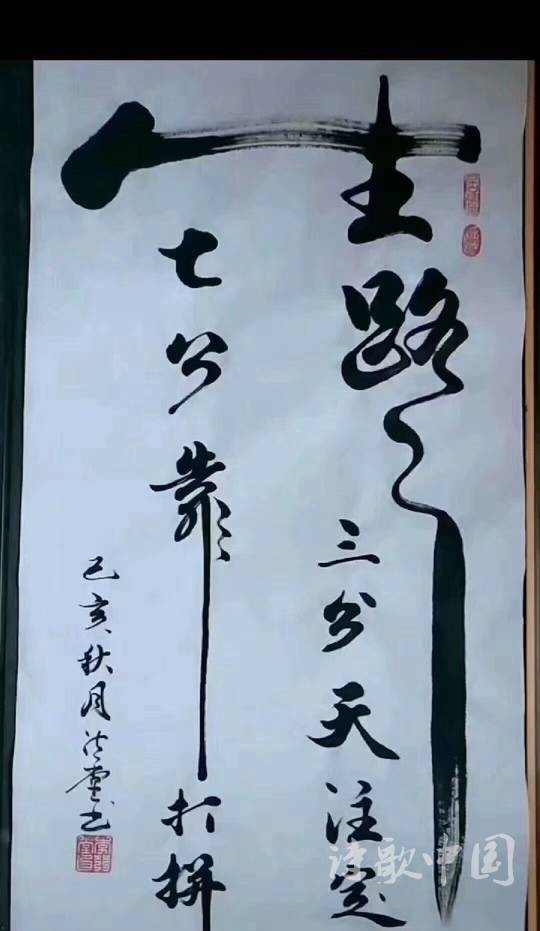 人生路
三分天注定
七分靠打拼
己亥秋月
书
诗歌中国